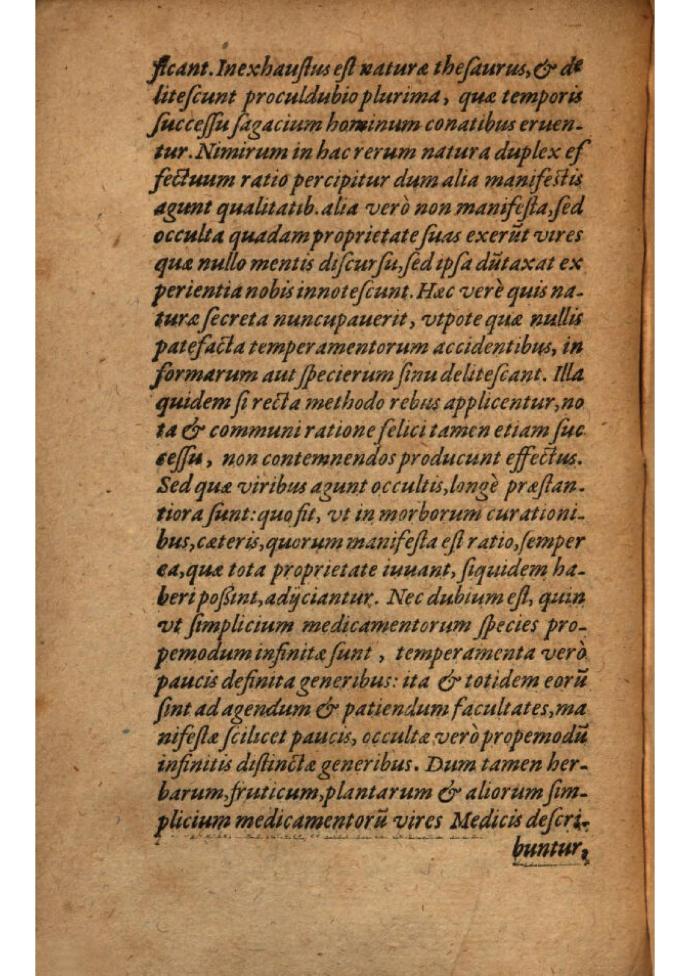 ſicant. Inexhauſtus eſt naturæ theſaurus, & de
liteſcunt proculdubio plurima, quæ temporis
ſucceſſu ſagacium hominum conatibus eruen-
tur. Nimirum in hac rerum natura duplex ef
fectuum ratio percipitur dum alia manifeſtis
agunt qualitatib. alia verò non manifeſta, ſed
occulta quadam proprietate ſuas exerūt vires
quæ nullo mentis diſcurſu, ſed ipſa dūtaxat ex
perientia nobis innoteſcunt. Hæc verè quis na-
turæ ſecreta nuncupauerit, vtpote quæ nullis
patefacta temperamentorum accidentibus, in
formarum aut ſpecierum ſinu deliteſcant. Illa
quidem ſi recta methodo rebus applicentur, no
ta & communi ratione felici tamen etiam ſuc
ceſſu, non contemnendos producunt effectus.
Sed quæ viribus agunt occultis, longè præſtan-
tiora ſunt: quo fit, vt in morborum curationi-
bus, cæteris, quorum manifeſta eſt ratio, ſemper
ea, quæ tota proprietate iuuant, ſiquidem ha-
beri poßint, adijciantur. Nec dubium eſt, quin
vt ſimplicium medicamentorum ſpecies pro-
pemodum infinitæ ſunt, temperamenta verò
paucis definita generibus: ita & totidem eorū
ſint ad agendum & patiendum facultates, ma
nifeſtæ ſcilicet paucis, occultæ verò propemodū
infinitis diſtinctæ generibus. Dum tamen her-
barum, fruticum, plantarum & aliorum ſim-
plicium medicamentorū vires Medicis deſcri-
buntur,